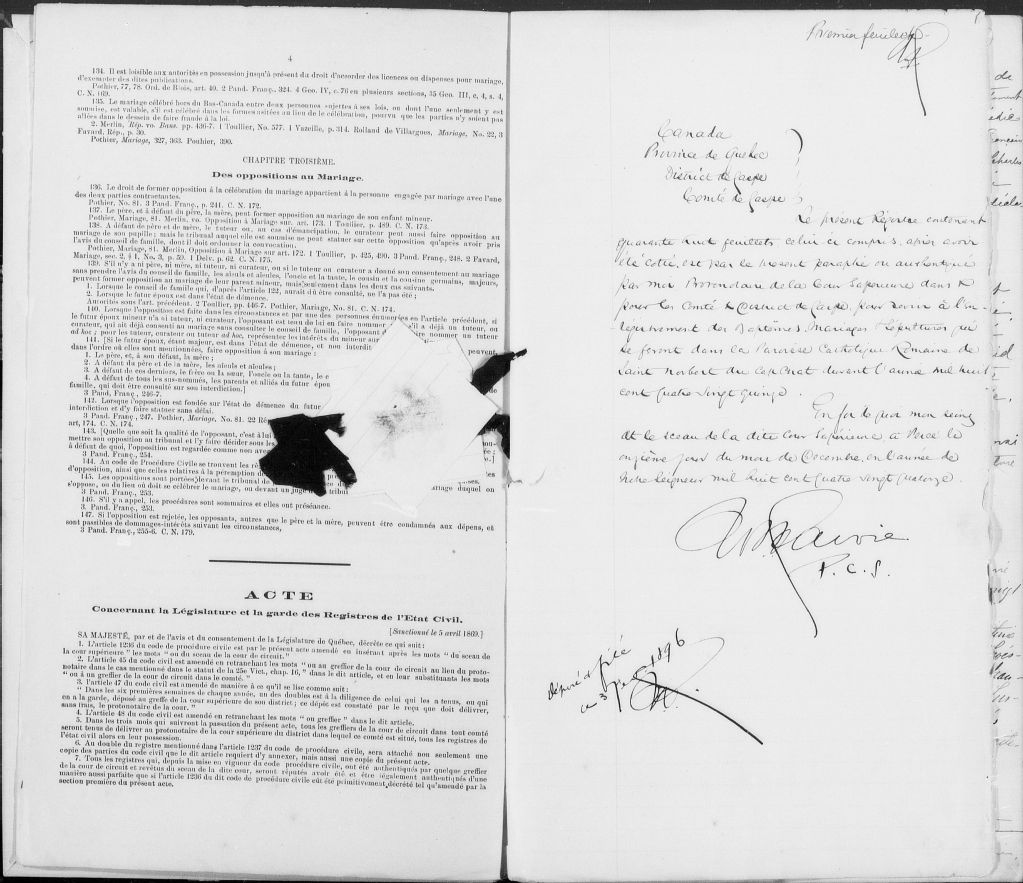 4
134. Il est loisible aux autorités en possession jusqu'à présent du droit d'accorder des licences ou dispenses pour mariage,
d'exempter des dites publications.
Pothier, 77, 78. Ord. de Blois, art. 40. 2 Pand. Franç., 324. 4 Geo. IV, c. 76 en plusieurs sections, 35 Geo. III, c. 4, s. 4,
C. N. 169.
135. Le mariage célébré hors du Bas-Canada entre deux personnes sujettes à ses lois, ou dont l'une seulement y est
soumise, est valable, s'il est célébré dans les formes usitées au lieu de la célébration, pourvu que les parties n'y soient pas
allées dans le dessein de faire fraude à la loi.
2. Merlin, Rép. vo. Bans. pp. 436-7. 1 Toullier, No. 577. 1 Vazeille, p. 314. Rolland de Villargues, Mariage, No. 22, 3
Favard, Rép., p. 30.
Pothier, Mariage, 327, 363. Pouhier, 390.
CHAPITRE TROISIÈME.
Des oppositions au Mariage.
136. Le droit de former opposition à la célébration du mariage appartient à la personne engagée par mariage avec l'une
des deux parties contractantes.
Pothier, No. 81. 3 Pand. Franç., p. 241. C. N. 172.
137. Le père, et à défaut du père, la mère, peut former opposition au mariage de son enfant mineur.
Pothier, Mariage, 81. Merlin, vo. Opposition à Mariage sur. art. 173. 1 Toullier, p. 489. C. N. 173.
138. A défaut de père et de mère, le tuteur ou, au cas d'émancipation, le curateur peut aussi faire opposition au
mariage de son pupille; mais le tribunal auquel elle est soumise ne peut statuer sur cette opposition qu'après avoir pris
l'avis du conseil de famille, dont il doit ordonner la convocation.
Pothier, Mariage, 81. Merlin, Opposition à Mariage sur art. 172. 1 Toullier, p. 425, 490. 3 Pand. Franç., 248. 2 Favard,
Mariage, sec. 2, § 1, No. 3, p. 59. 1 Delv. p. 62. C. N. 175.
139. S'il n'y a ni père, ni mère, ni tuteur, ni curateur, ou si le tuteur ou curateur a donné son consentement au mariage
sans prendre l'avis du conseil de famille, les aïeuls et aïeules, l'oncle et la tante, le cousin et la cousine germains, majeurs,
peuvent former opposition au mariage de leur parent mineur, mais seulement dans les deux cas suivants.
1. Lorsque le conseil de famille qui, d'après l'article 122, aurait dû être consulté, ne l'a pas été;
2. Lorsque le futur époux est dans l'état de démence.
Autorités sous l'art. précédent. 2 Toullier, pp. 446-7. Pothier, Mariage, No. 81. C. N. 174.
140. Lorsque l'opposition est faite dans les circonstances et par une des personnes énumérées en l'article précédent, si
le futur époux mineur n'a ni tuteur, ni curateur, l'opposant est tenu de lui en faire nommer s'il a déjà un tuteur, ou
curateur, qui ait déjà consenti au mariage sans consulter le conseil de famille, l'opposant nommer un tuteur
ad hoc; pour les tuteur, curateur ou tuteur ad hoc, représenter les intérêts du mineur sur
141. [Si le futur époux, étant majeur, est dans l'état de démence, et non interdit peuvent
dans l'ordre où elles sont mentionnées, faire opposition à son mariage:
1. Le père, et, à son défaut, la mère;
2. A défaut du père et de la mère, les aïeuls et aïeules;
3. A défaut de ces derniers, le frère ou la sœur, l'oncle ou la tante, le
4. A défaut de tous les sus-nommés, les parents et alliés du futur époux
famille, qui doit être consulté sur son interdiction.]
3 Pand. Franç., 246-7.
142. Lorsque l'opposition est fondée sur l'état de démence du futur
interdiction et d'y faire statuer sans délai.
3 Pand. Franç., 247. Pothier, Mariage, No. 81. 22
art, 174. C. N. 174.
143. [Quelle que soit la qualité de l'opposant, c'est à lui
mettre son opposition au tribunal et l'y faire décider sous les
à défaut de quoi, l'opposition est regardée comme non
3 Pand. Franç., 254.
144. Au code de Procédure Civile se trouvent les
d'opposition, ainsi que celles relatives à la péremption de
145. Les oppositions sont portées devant le tribunal de
s'oppose, ou du lieu où doit se célébrer le mariage, ou devant un juge tribu mariage duquel on
3 Pand. Franç., 253.
146. S'il y a appel, les procédures sont sommaires et elles ont préséance.
3. Pand. Franç., 253.
147. Si l'opposition est rejetée, les opposants, autres que le père et la mère, peuvent être condamnés aux dépens, et
sont passibles de dommages-intérêts suivant les circonstances,
3 Pand. Franç., 255-6. C. N. 179.
ACTE
Concernant la Législature et la garde des Registres de l'Etat Civil.
[Sanctionné le 5 avril 1869.]
SA MAJESTÉ, par et de l'avis et du consentement de la Législature de Québec, décrète ce qui suit:
1. L'article 1236 du code de procédure civile est par le présent acte amendé en insérant après les mots "du sceau de
la cour supérieure" les mots "ou du sceau de la cour de circuit."
2. L'article 45 du code civil est amendé en retranchant les mots "ou au greffier de la cour de circuit au lieu du proto-
notaire dans le cas mentionné dans le statut de la 25e Vict., chap. 16," dans le dit article, et en leur substituant les mots
"ou à un greffier de la cour de circuit dans le comté."
3. l'article 47 du code civil est amendé de manière à ce qu'il se lise comme suit:
"Dans les six premières semaines de chaque année, un des doubles est à la diligence de celui qui les a tenus, ou qui
en a la garde, déposé au greffe de la cour supérieure de son district; ce dépôt est constaté par le reçu que doit délivrer,
sans frais, le protonotaire de la cour."
4. L'article 48 du code civil est amendé en retranchant les mots "on greffier" dans le dit article.
5. Dans les trois mois qui suivront la passation du présent acte, tous les greffiers de la cour de circuit dans tout comté
seront tenus de délivrer au protonotaire de la cour supérieure du district dans lequel ce comté est situé, tous les registres de
l'état civil alors en leur possession.
6. Au double du registre mentionné dans l'article 1237 du code de procédure civile, sera attaché non seulement une
copie des parties du code civil que le dit article requiert d'y annexer, mais aussi une copie du présent acte.
7. Tous les registres qui, depuis la mise en vigueur du code procédure civile, ont été authentiqués par quelque greffier
de la cour de circuit et revêtus du sceau de la dite cour, seront réputés avoir été et être légalement authentiqués d'une
manière aussi parfaite que si l'article 1236 du dit code de procédure civile eût été primitivement décrété tel qu'amendé par la
section première du présent acte.
Premier feuillet
Canada
Province de Quebec
District de Gaspe
Comté de Gaspe
Le présent Régistre contenant
quarante huit feuillets celui ci compris, après avoir
été cotté, est par le present paraphé ou authentiqué
par moi Protonotaire de la Cour Superieure dans &
pour les Comté & District de Gaspe, pour servir à l'en-
registrement des Baptêmes, Mariages & Sépultures qui
se feront dans la Paroisse Catholique Romaine de
Saint Norbert du Cap Chat durant l'année mil huit
cent quatre vingt quinze.
En foi de quoi mon seing
et le sceau de la dite Cour Supérieure, à Percé le
onzième jour du mois de Decembre en l'année de
Notre Seigneur mil huit cent quatre vingt quatorze.
P. C. S.
Déposé & filé
1896